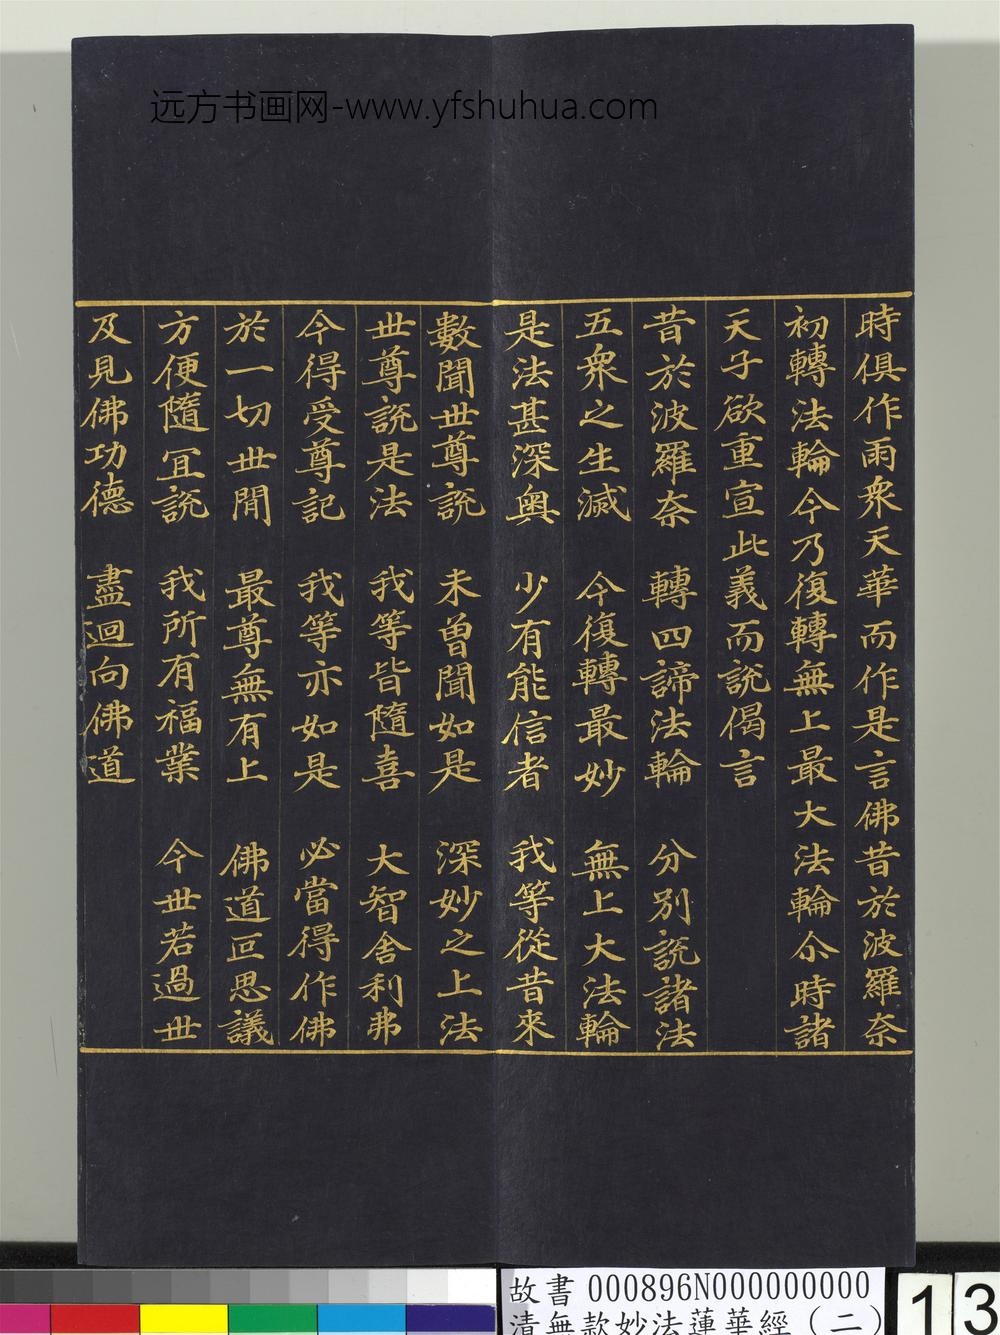 远方书画网-www.yfshuhua.com
時俱作雨衆天華而作是言佛昔於波羅奈
初轉法輪今乃復轉無上最大法輪尒時諸
天子欲重宣此義而說偈言
昔於波羅奈 轉四諦法輪 分別說諸法
五衆之生滅 今復轉最妙 無上大法輪
是法甚深奥 少有能信者 我等從昔來
數聞世尊說 未曾聞如是 深妙之上法
世尊說是法 我等皆隨喜 大智舍利弗
今得受尊記 我等亦如是 必當得作佛
於一切世間 最尊無有上 佛道叵思議
方便隨冝說 我所有福業 今世若過世
及見佛功德 盡迴向佛道
故書 000896N000000000
清無款妙法蓮華經（二）
13